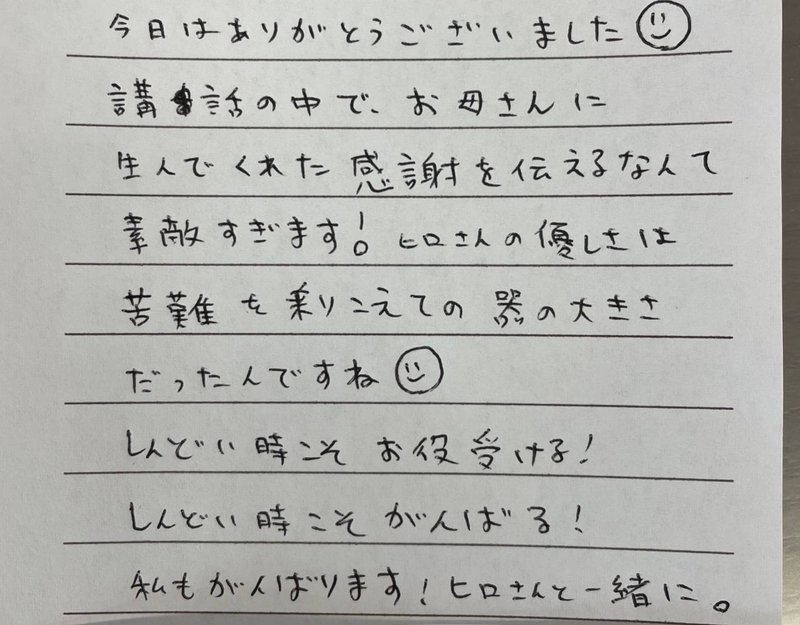 今日はありがとうございました
講話の中で、お母さんに
生んでくれた感謝を伝えるなんて
素敵すぎます！ヒロさんの優しさは
苦難を乗りこえての器の大きさ
だったんですね
しんどい時こそお役受ける！
しんどい時こそがんばる！
私もがんばります！ヒロさんと一緒に。